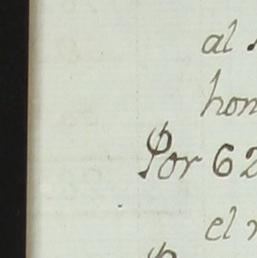 al
hon
Por 62
el